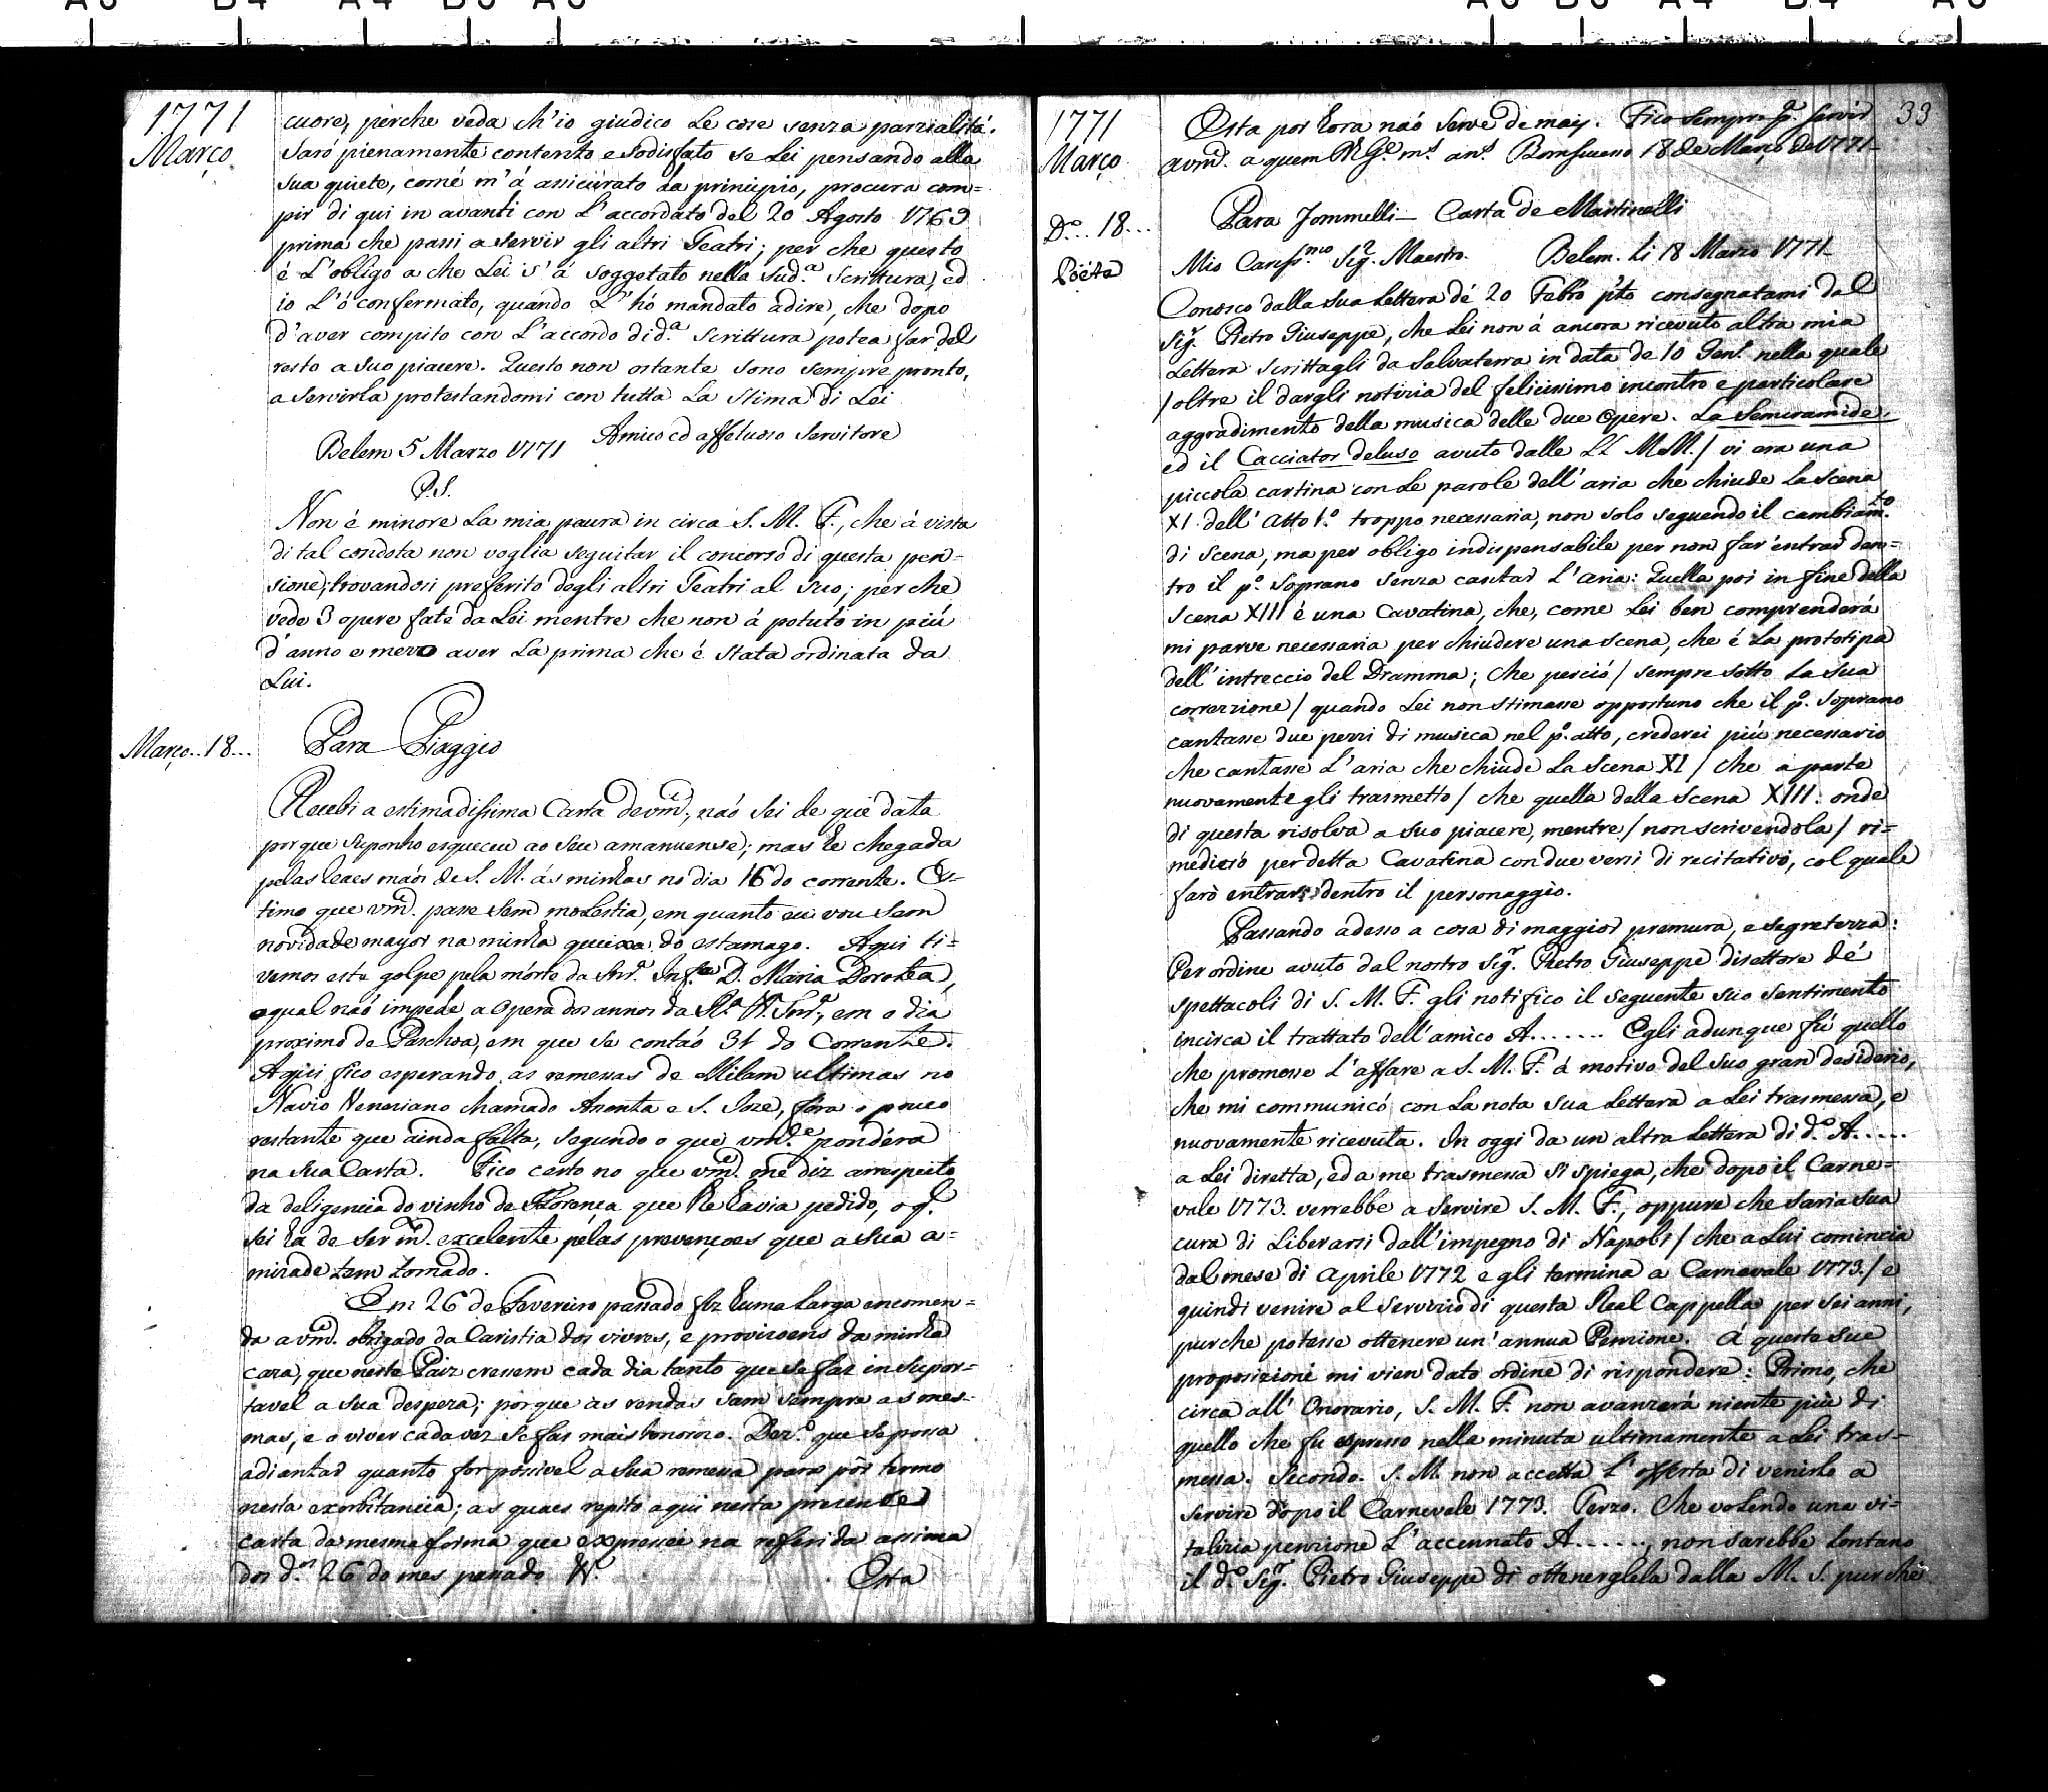 1771
Março
cuore, perche veda ch'io giudico le cose senza parzialitá.
Saró pienamente contento e sodisfato se Lei pensando alla
sua quiete, comé m'á assicurato da principio, procura com=
pir di qui in avanti con l'accordato del 20 Agosto 1769
prima che passi a servir gli altri Teatri; per che questo
é l'obligo a che Lei s'á soggetato nella sud.ª Scrittura, ed
io l'ó confermato, quando l'hó mandato adire, che dopo
d'aver compito con l'accordo di d.ª Scrittura potea far del
resto a suo piacere. Questo non ostante sono sempre pronto,
a servirla protestandomi con tutta la stima di Lei
Amico ed affetuoso Servitore
Belem 5 Marzo 1771
P.S.
Non é minore la mia paura in circa S. M. F., che á vista
di tal condota non voglia seguitar il concorso di questa pen=
sione, trovandosi preferito degli altri Teatri al suo; per che
vede 3 opere fate da Lei mentre che non á potuto in piú
d'anno e mezzo aver la prima che é stata ordinata da
Lui.
Março..18...
Para Piaggio
Recebi a estimadissima Carta de vm.ce, naó sei de que data
porque suponho esqueceu ao seu amanuense; mas he chegada
pelas Reaes maós de S. M. ás minhas no dia 16 do corrente. Es=
timo que vm.ce passe sem molestia, em quanto eu vou sem
novidade mayor na minha queixa do estamago. Aqui ti=
vemos este golpe pela mórte da Snr.ª Inf.ta D. Maria Dorotea,
o qual naó impede a Opera dos annos da R.ª N. Snr.ª, em o dia
proximo de Paschoa, em que se contaó 31 do Corrente.
Aqui fico esperando as remessas de Milam ultimas no
Navio Veneziano chamado Anonta e S. Joze, fóra o pouco
restante que ainda falta, segundo o que vm.ce pondéra
na sua Carta. Fico certo no que vm.ce me diz arrespeito
da deligencia do vinho de Florença que lhe havia pedido, o q.
sei ha de ser m.to excelente pelas prevençoes que a sua a=
mizade tem tomado.
Em 26 de Fevereiro passado fiz huma larga encomen=
da a vm.ce obrigado da Caristia dos viveres, e provizoens da minha
caza, que neste Paiz crescem cada dia tanto que se faz insupor=
tavel a sua despeza; porque as rendas sam sempre as mes=
mas, e o viver cada vez se faz mais honorozo. Dez.º que se possa
adiantar quanto for possivel a sua remessa para pôr termo
nesta exorbitancia; as quaes repito aqui nesta prezente
carta da mesma forma que expressei na referida assima
dos d.os 26 do mes passado N.
Esta
1771
Março
33
Esta por hora naó serve de mais. Fico sempre p.ª servir
a vm.ce a quem D.s G.e m.s an.s Bomsucesso 18 de Março de 1771
D.º..18...
Poéta
Para Jommelli – Carta de Martinelli
Mio Cariss.mo Sig.r Maestro. Belem. li 18 Marzo 1771
Conosco dalla sua Lettera dé 20 Febro p.to consegnatami dal
Sig.r Pietro Giuseppe, che Lei non á ancora ricevuto altra mia
Lettera scrittagli da Salvaterra in data de 10 Gen.º nella quale
/oltre il dargli notizia del felicissimo incontro e particolare
aggradimento della musica delle due Opere. La Semiramide,
ed il Cacciator deluso avuto dalle LL MM./ vi era una
piccola cartina con le parole dell'aria che chiude la scena
XI. dell'Atto 1.º troppo necessaria, non solo seguendo il cambiam.to
di Scena, ma per obligo indispensabile per non far'entrar den=
tro il p.º Soprano senza cantar l'aria: Quella poi in fine della
Scena XIII é una Cavatina, che, come Lei ben comprenderá
mi parve necessaria per chiudere una scena, che é la prototipa
dell'intreccio del Dramma; che perció/ sempre sotto la sua
correzzione/ quando Lei non stimasse opportuno che il p.º Soprano
cantasse due pezzi di musica nel p.º atto, crederei piú necessario
che cantasse l'aria che chiude la Scena XI / che a parte
nuovamente gli trasmetto/ che quella della Scena XIII: onde
di questa risolva a suo piacere, mentre/ non scrivendola/ ri=
medieró per detta Cavatina con due versi di recitativo, col quale
faró entrare dentro il personaggio.
Passando adesso a cosa di maggior premura, e segretezza:
Per ordine avuto dal nostro Sig.r Pietro Giuseppe direttore dé
spettacoli di S. M. F. gli notifico il seguente suo sentimento
incirca il trattato dell'amico A....... Egli adunque fú quello
che promosse l'affare a S. M. F. á motivo del suo gran desiderio,
che mi communicó con la nota sua Lettera a Lei trasmessa, e
nuovamente ricevuta. In oggi da un altra Lettera di d.º A.....
a Lei diretta, ed a me trasmessa si spiega, che dopo il Carne=
vale 1773. verrebbe a servire S. M. F., oppure che saria sua
cura di liberarsi dall'impegno di Napoli/ che a Lui comincia
dal mese di Aprile 1772 e gli termina a Carnevale 1773./ e
quindi venire al servizio di questa Real Cappella per sei anni,
purche potesse ottenere un'annua Penzione. Á queste sue
proposizioni mi vien dato ordine di rispondere: Primo, che
circa all'Onorario, S. M. F. non avanzerá niente piú di
quello che fu espresso nella minuta ultimamente a Lei tras=
messa. Secondo. S. M. non accetta l'offerta di venirlo a
servire dopo il Carnevale 1773. Terzo. Che volendo una vi=
talizia penzione l'accennato A......, non sarebbe lontano
il d.º Sig.r Pietro Giuseppe di ottenerglela dalla M. S. purche